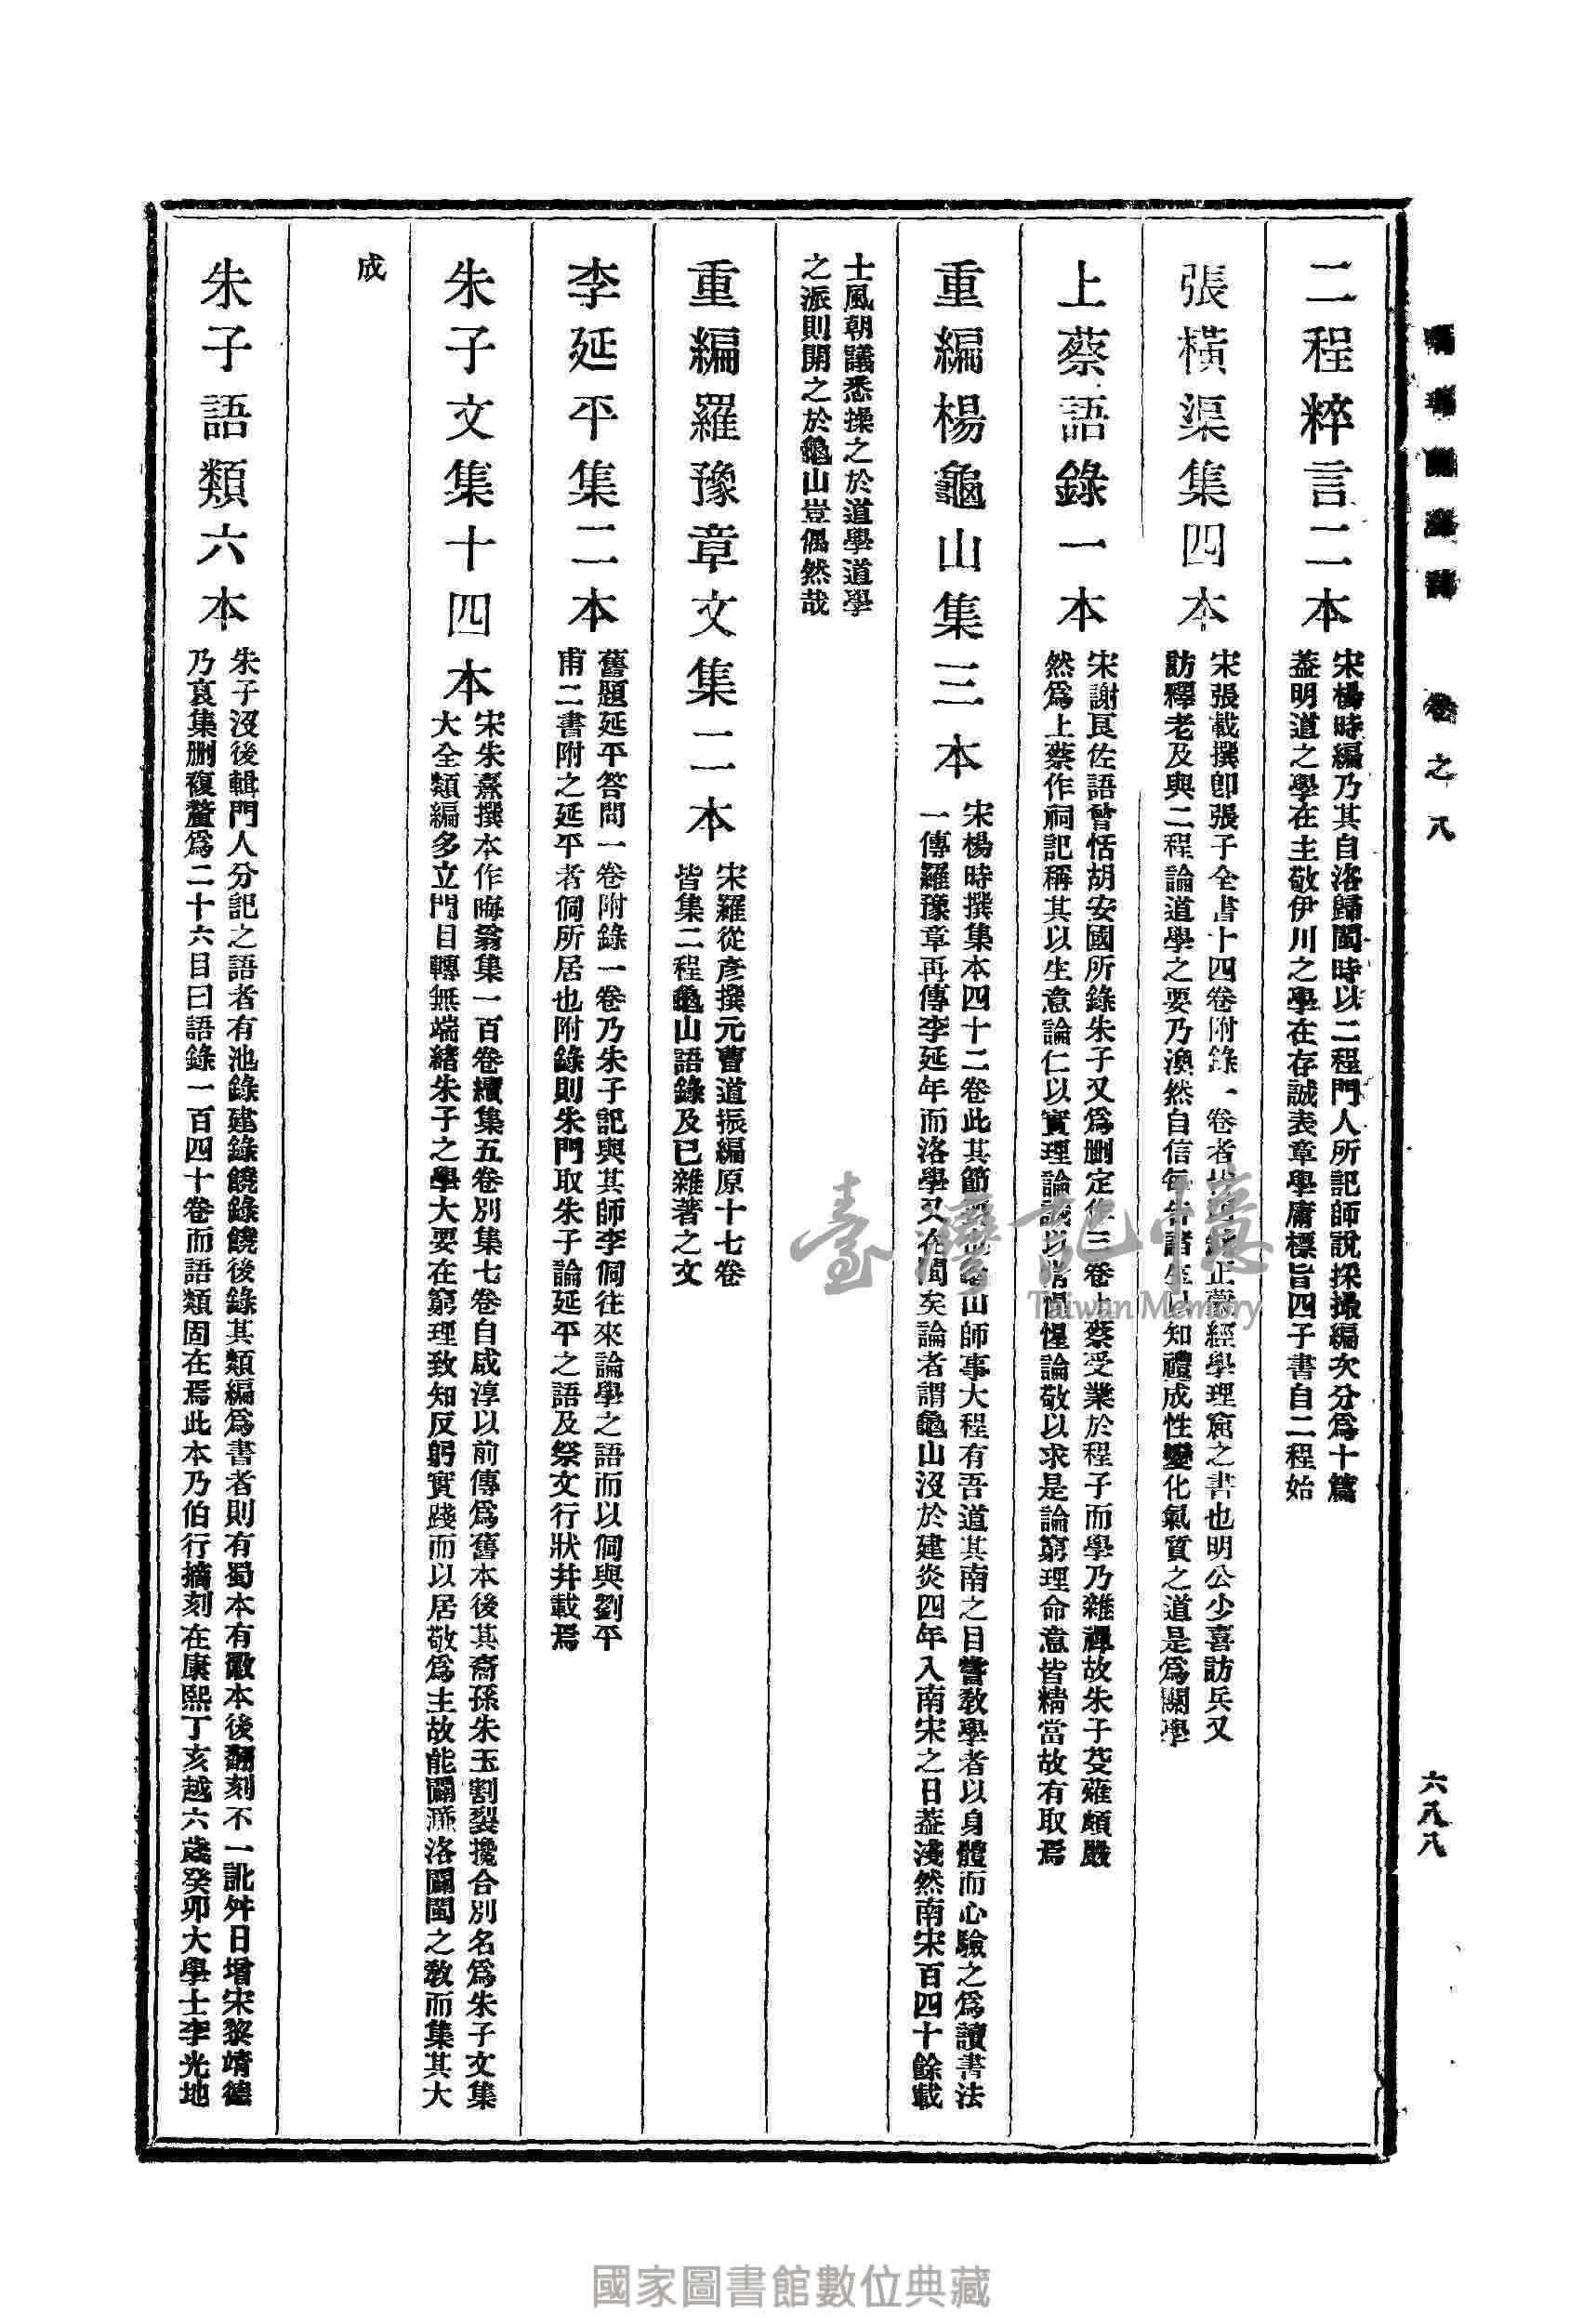 卷之八
六八八
二程粹言二本
宋楊時編乃其自洛歸閩時以二程門人所記師說採撮編次分爲十篇
葢明道之學在主敬伊川之學在存誠表章學庸標旨四子書自二程始
張橫渠集四本
宋張載撰卽張子全書十四卷附錄一卷者 正蒙經學理窟之書也明公少喜訪兵又
訪釋老及與二程論道學之要乃渙然自信每告諸生以知禮成性變化氣質之道是爲關學
上蔡語錄一本
宋謝良佐語曾恬胡安國所錄朱子又爲删定作三卷上蔡受業於程子而學乃雜禪故朱子芟薙頗嚴
然爲上蔡作祠記稱其以生意論仁以實理論誠以常惺惺論敬以求是論窮理命意皆精當故有取焉
重編楊龜山集三本
宋楊時撰集本四十二卷此其節 山師事大程有吾道其南之目嘗教學者以身體而心驗之爲讀書法
一傳羅豫章再傳李延年而洛學又在閩矣論者謂龜山沒於建炎四年入南宋之日葢淺然南宋百四十餘載
士風朝議悉操之於道學道學
之派則開之於龜山豈偶然哉
重編羅豫章文集二本
宋羅從彥撰元曹道振編原十七卷
皆集二程龜山語錄及已雜著之文
李延平集二本
舊題延平答問一卷附錄一卷乃朱子記與其師李侗往來論學之語而以侗與劉平
甫二書附之延平者侗所居也附錄則朱門取朱子論延平之語及祭文行狀幷載焉
朱子文集十四本
宋朱熹撰本作晦翁集一百卷續集五卷別集七卷自咸淳以前傳爲舊本後其裔孫朱玉割裂攙合別名爲朱子文集
大全類編多立門目轉無端緒朱子之學大要在窮理致知反躬實踐而以居敬爲主故能闢濂洛關閩之教而集其大
成
朱子語類六本
朱子沒後輯門人分記之語者有池錄建錄饒錄饒後錄其類編爲書者則有蜀本有徽本後翻刻不一訛舛日增宋黎靖德
乃裒集删複釐爲二十六目曰語錄一百四十卷而語類固在焉此本乃伯行摘刻在康熙丁亥越六歲癸卯大學士李光地
臺灣記憶
Taiwan Memory
國家圖書館數位典藏